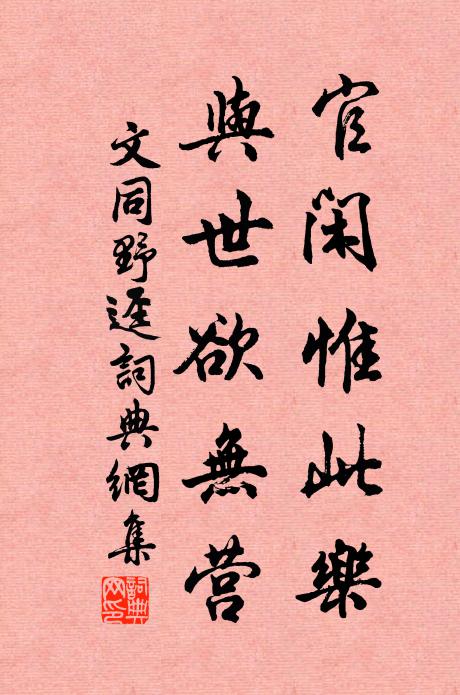 官閑惟此樂
與世欲無营
文同野逕詞典網集
詞典网印